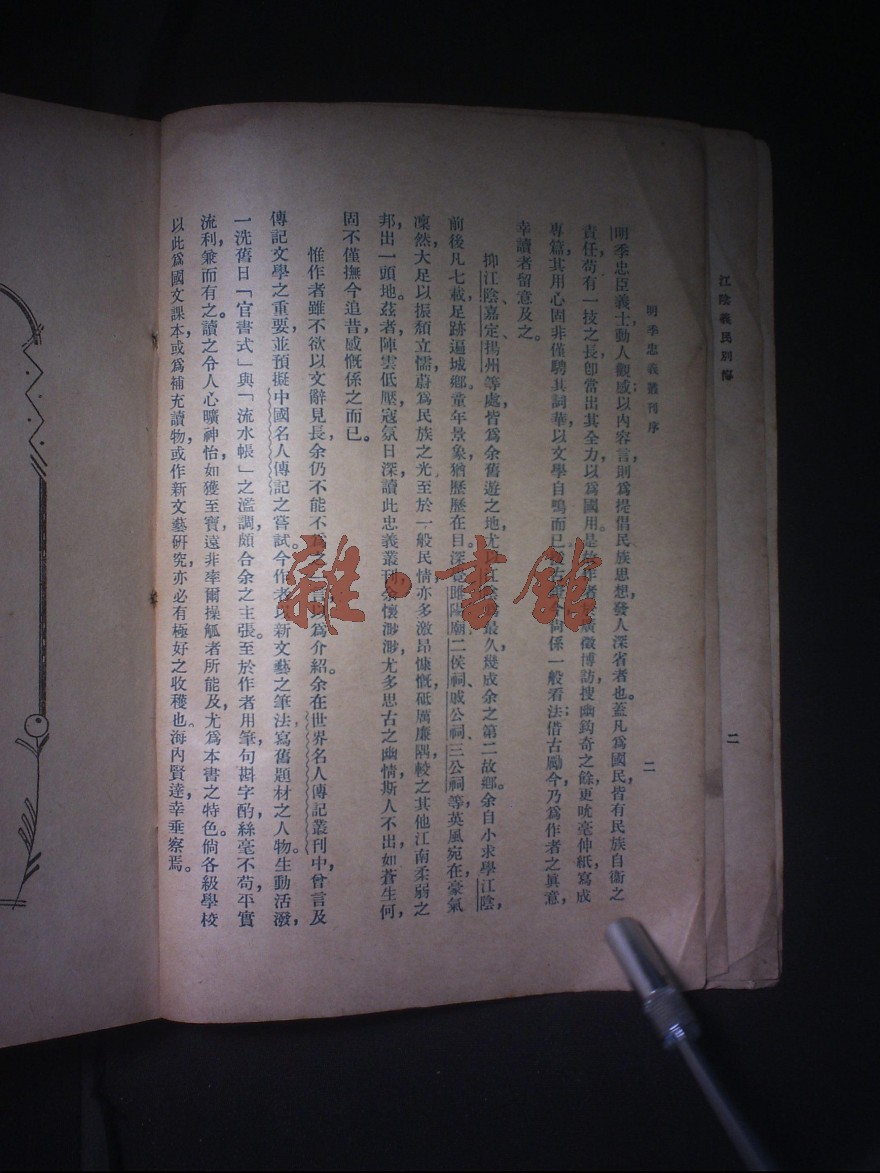 江陰義民別傳
二
明季忠義叢刊序
二
明季忠臣義士動人觀感以內容言則爲提倡民族思想發人深省者也蓋凡爲國民皆有民族自衞之
責任苟有一技之長卽當出其全力以爲國用是故作者廣徵博訪搜幽鈎奇之餘更吮毫伸紙寫成
專篇其用心固非僅騁其詞華以文學自鳴而已尙係一般看法借古勵今乃爲作者之眞意
幸讀者留意及之。
抑江陰、嘉定、揚州等處皆爲余舊遊之地尤江陰最久幾成余之第二故鄉。余自小求學江陰,
前後凡七載,足跡遍城鄉。童年景象猶歷歷在目。深覺睢陽廟二侯祠、戚公祠、三公祠等,英風宛在,豪氣
凜然,大足以振頹立懦,蔚爲民族之光至於一般民情亦多激昂慷慨,砥厲廉隅,較之其他江南柔弱之
邦,出一頭地。茲者陣雲低壓,寇氛日深,讀此忠義叢刊,余懷渺渺,尤多思古之幽情斯人不出如蒼生何,
固不僅撫今追昔,感慨係之而已。
惟作者雖不欲以文辭見長,余仍不能不爲之一言以爲介紹。余在世界名人傳記叢刊中,曾言及
傳記文學之重要,並預擬中國名人傳記之嘗試。今作者以新文藝之筆法,寫舊題材之人物。生動活潑,
一洗舊日「官書式」與「流水帳」之濫調,頗合余之主張。至於作者用筆,句斟字酌,絲毫不苟,平實
流利,兼而有之。讀之令人心曠神怡,如獲至寶,遠非率爾操觚者所能及,尤爲本書之特色。倘各級學校
以此爲國文課本,或爲補充讀物,或作新文藝研究,亦必有極好之收穫也。海內賢達,幸垂察焉。
雜·書館